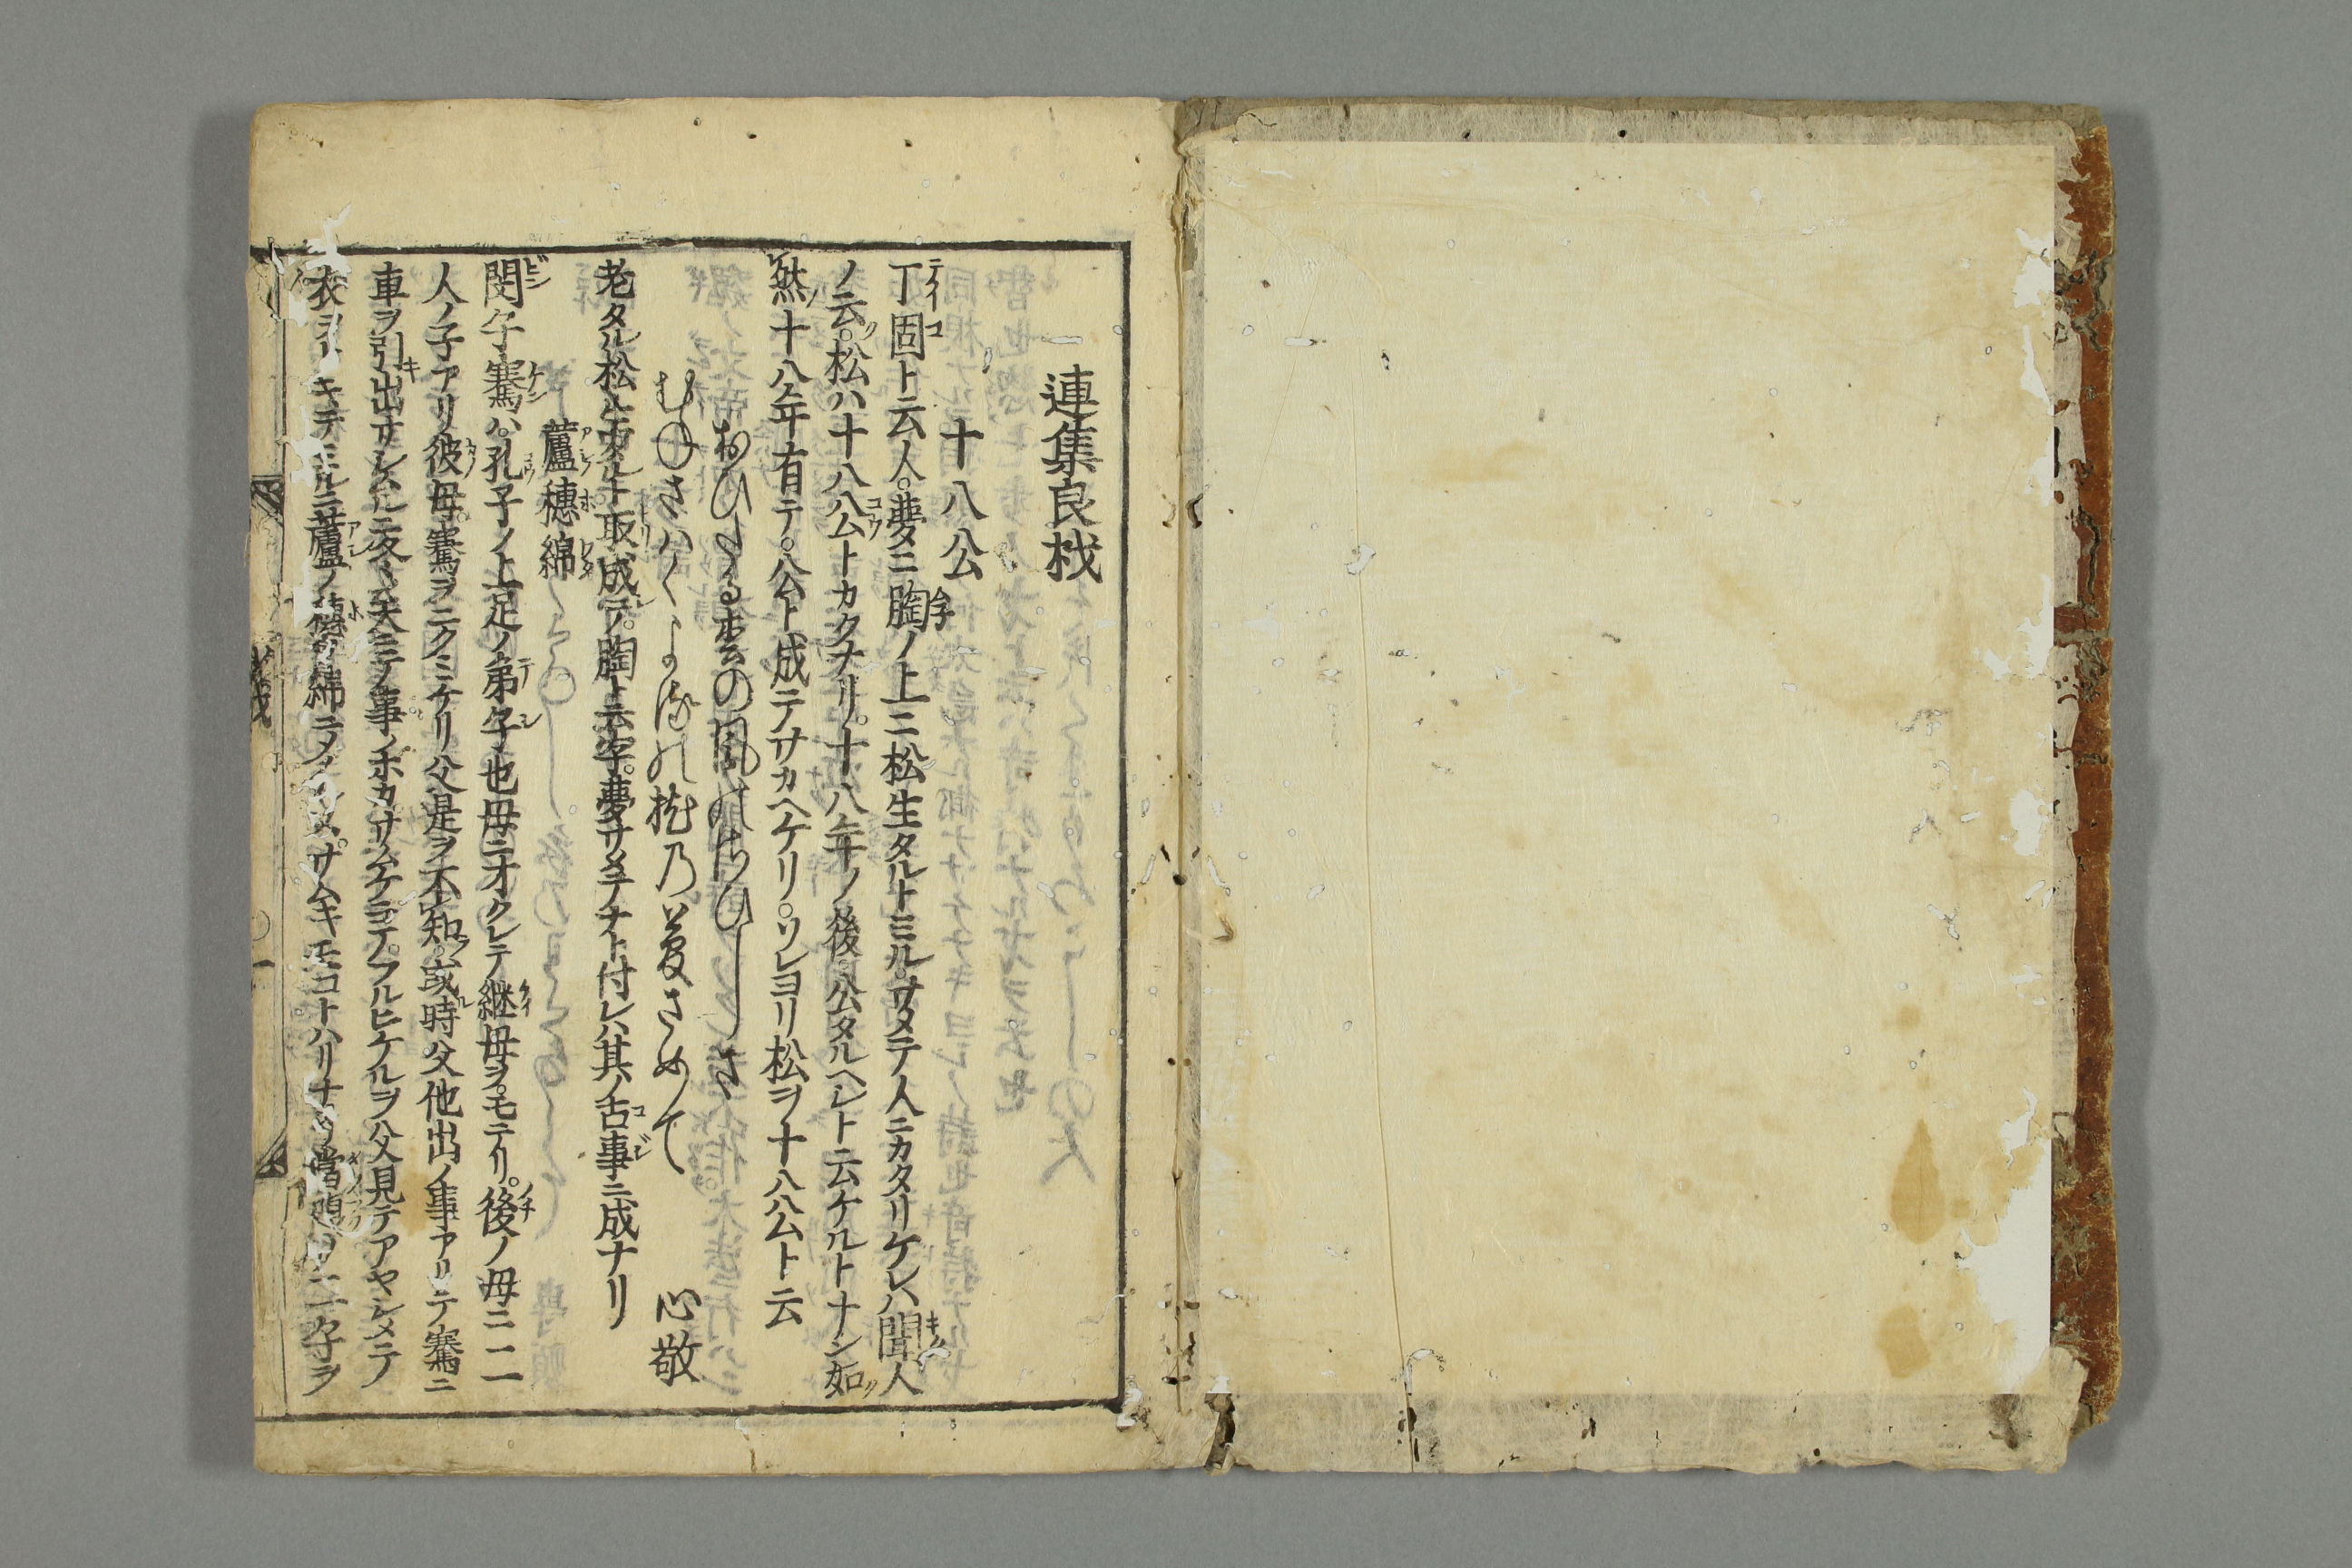 連集良材
十八公
丁固ト云人。夢ニ胸ノ上ニ松生タルトミル。サメテ人ニカタリケレハ聞人
ノ云。松ハ十八公トカクナリ。十八年ノ後。公タルヘシト云ケルトナン如
然十八年有テ。公ト成テサカヘケリ。ソレヨリ松ヲ十八公ト云
おひ 松の風のはけしさ
むねさは
夢さめて 心敬
老タル松ト生タルト取成テ。胸ト云字。夢サメテナト付レハ其ノ古事ニ成ナリ
蘆穗綿
閔子騫ハ。孔子ノ上足ノ弟子也母ニオクレテ継母ヲモテリ。後ノ母ニ二
人ノ子アリ彼母。騫ヲニクミケリ父是ヲ不知。或時父他出ノ事アリテ騫ニ
車ヲ引出サシムルニ冬ノ天ニテ事ノホカサムケニテ。フルヒケルヲ父見テアヤシメテ
衣ヲ キテミルニ蘆ノ穗ヲ綿ニ サムキモコトハリナリ當腹ノ二子ヲ